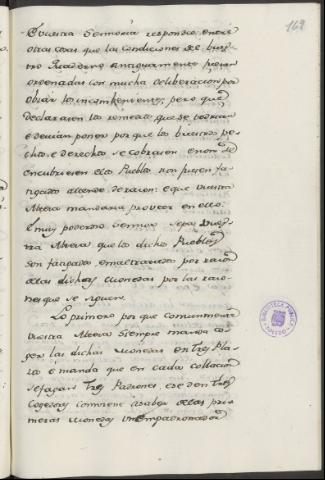 169
Vuestra Señoria respondio entre
otras cosas que las condiciones de bues
tro Quaderno antiguamente fueron
ordenadas con mucha deliberacion por
obiar los inconbenientes; pero que
declarasen los remedios que se podrian
e devian poner por que los buestros pe
chos e derechos se cobrasen e non se
encubriesen e los Pueblos non fuesen fa
tigados allende de razon: e que vuestra
Alteza mandaria proveer en ello.
E muy poderoso Señor sepa Vues
tra Alteza que los dichos Pueblos
son fatigados, e maltratados por razon
de las dichas monedas por las razo
nes que se siguen.
Lo primero por que comunmente
Vuestra Alteza siempre manda co
ger las dichas monedas en tres Pla
zos e manda que en cada collacion
se fagan tres Padrones, e se den tres
Cogedores conviene á saber de las pri
meras monedas un Empadronador
BIBLIOTECA PUBLICA
TOLEDO